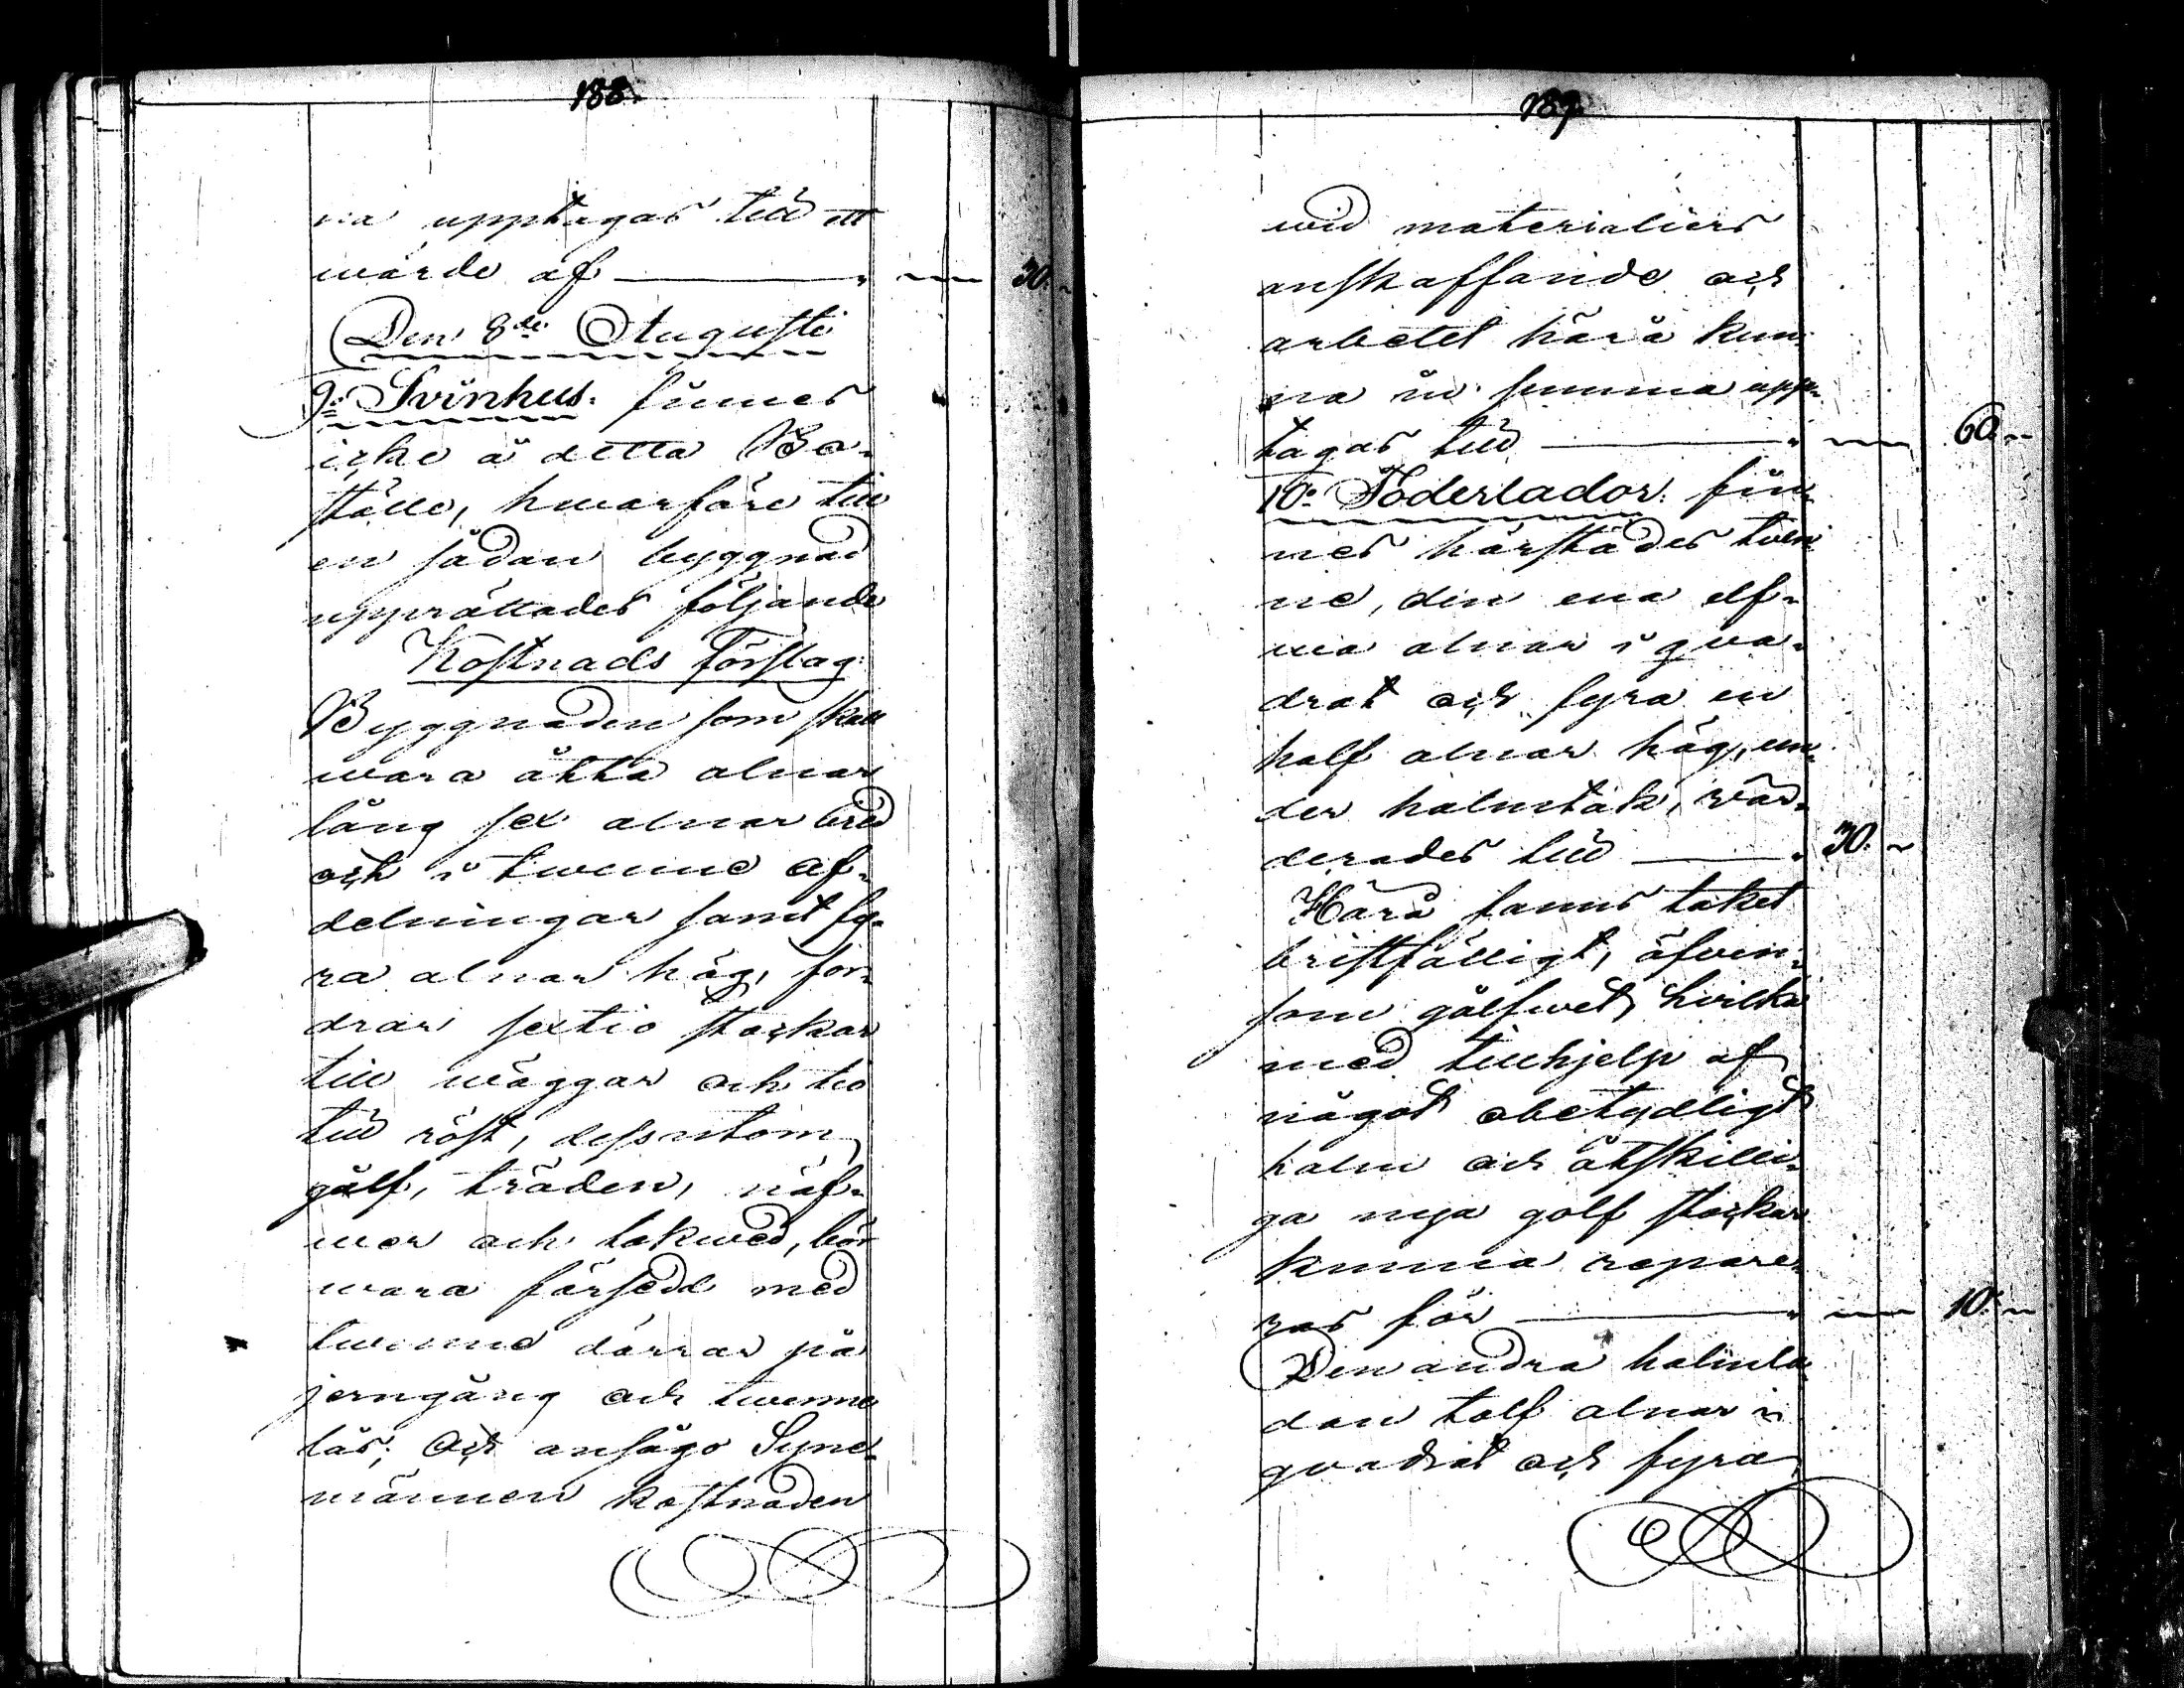 188.
na upptagas till ett
wärde af ———— " ~~ 30. ~
Den 8de Augusti
9:o Svinhus. finnes
icke å detta Bo-
ställe, hwarföre till
en sådan byggnad
upprättades följande
Kostnads Förslag:
Byggnaden som skall
wara åtta alnar
lång sex alnar bred
och i twenne af-
delningar samt fy-
ra alnar hög, for-
drar sextio stockar
till wäggar och tio
till röst, dessutom
gålf, träden, näf-
wer och takwed, bör
wara försedd med
twenne dörrar på
jerngång och twenne
lås; Och ansågo Syne-
männen kostnaden
189.
wid materialiers
anskaffande och
arbetet härå kun-
na in summa upp-
tagas till ———— " ~~ 60. ~
10:o Foderlador. fin-
nes härstädes tven-
ne, den ena elf-
wa alnar i qva-
drat och fyra en
half alnar hög, un-
der halmtak, vär-
derades till ———— " 30. ~
Härå fanns taket
bristfälligt, äfven-
som gålfwet, hvilka
med tillhjelp af
något obetydligt
halm och åtskilli-
ga nya golf stockar
kunna repare-
ras för ———— " ~~ 10. ~
Den andra halmla-
dan tolf alnar i
qvadrat och fyra